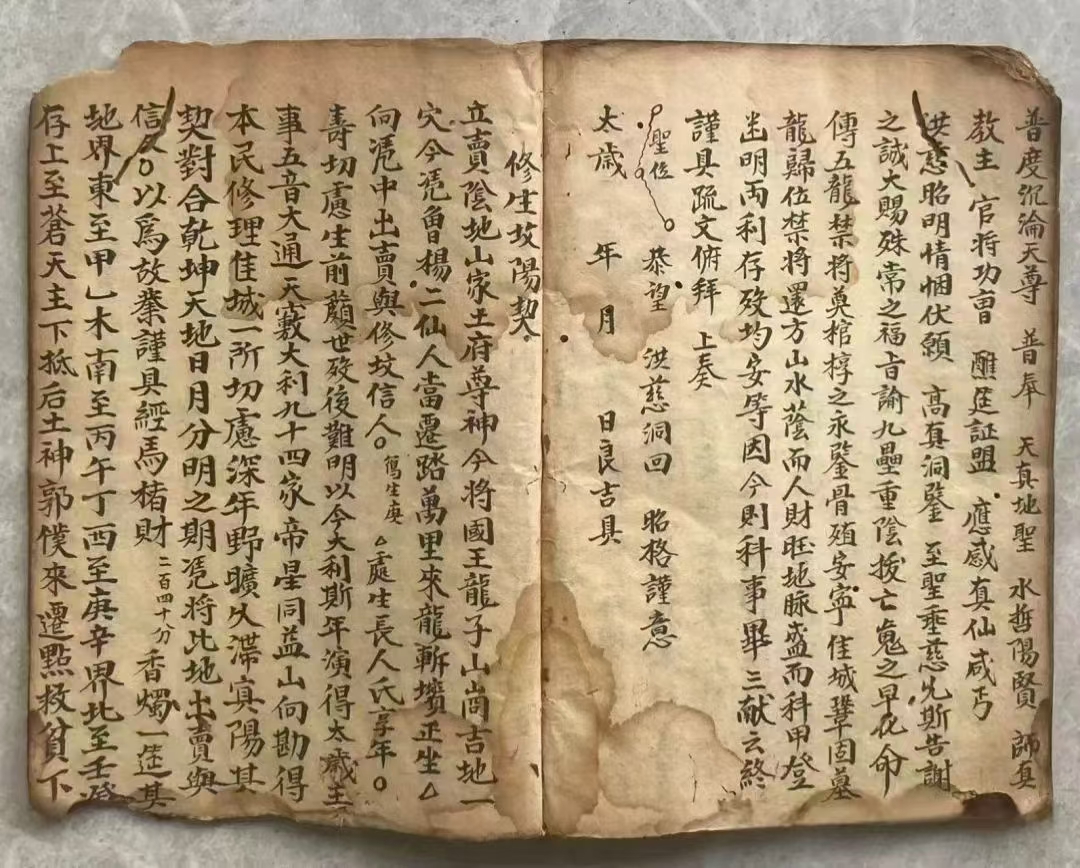 普度沉淪天尊 普奉 天真地聖 水哲陽賢 師真
教主 官將功曺 醮筵証盟 應感真仙咸丐
洪慈昭明情悃伏願 髙真洞鑒 至聖垂慈允斯告謝
之誠大賜殊常之福㫖諭九壘重陰拔亡䰟之早化命
傳五龍禁將奠棺椁之永鑒骨殖安寜佳城鞏固墓
龍歸位禁將還方山水蔭而人財旺地脉盛而科甲登
幽明两利存殁均安等因今則科事畢三献云終
謹具疏文俯拜 上奏
聖位 恭望 洪慈洞回 昭格謹意
太歲 年 月 日良吉具
修生坟陽契
立賣陰地山家土府尊神今將國王龍子山崗吉地一
穴今凴魯楊二仙人當遷踏萬里來龍斬壙正坐△
向凴中出賣與修坟信人○ 寫生庚 △處生長人氏享年○
壽切慮生前顧世殁後難明以今大利斯年演得太歲主
事五音大通天竅大利九十四家帝星同益山向勘得
本民修理佳城一所切慮深年野曠久滯寘陽其
契對合乾坤天地日月分明之期凴將比地出賣與
信人○以為故塋謹具經馬楮財 二百四十分 香燭一筵其
地界東至甲乚木南至丙午丁西至庚辛界北至壬癸
存上至蒼天主下抵后土神郭僕來遷點救貧下